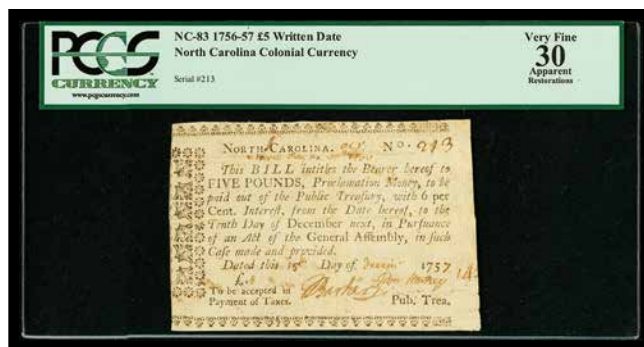 PCGS
CURRENCY
www.pcgscurrency.com
NC-83 1756-57 £5 Written Date
North Carolina Colonial Currency
Serial #213
Very Fine
30
Apparent
Restorations
NORTH CAROLINA. No. 213
This BILL intitles the Bearer hereof to
FIVE POUNDS, Proclamation Money, to be
paid out of the Public Treasury, with 6 per
Cent. Interest, from the Date hereof, to the
Tenth Day of December next, in Pursuance
of an Act of the General Assembly, in such
Case made and provided.
Dated this 15th Day of 1757
£
To be accepted in
Payment of Taxes.
Pub. Trea.